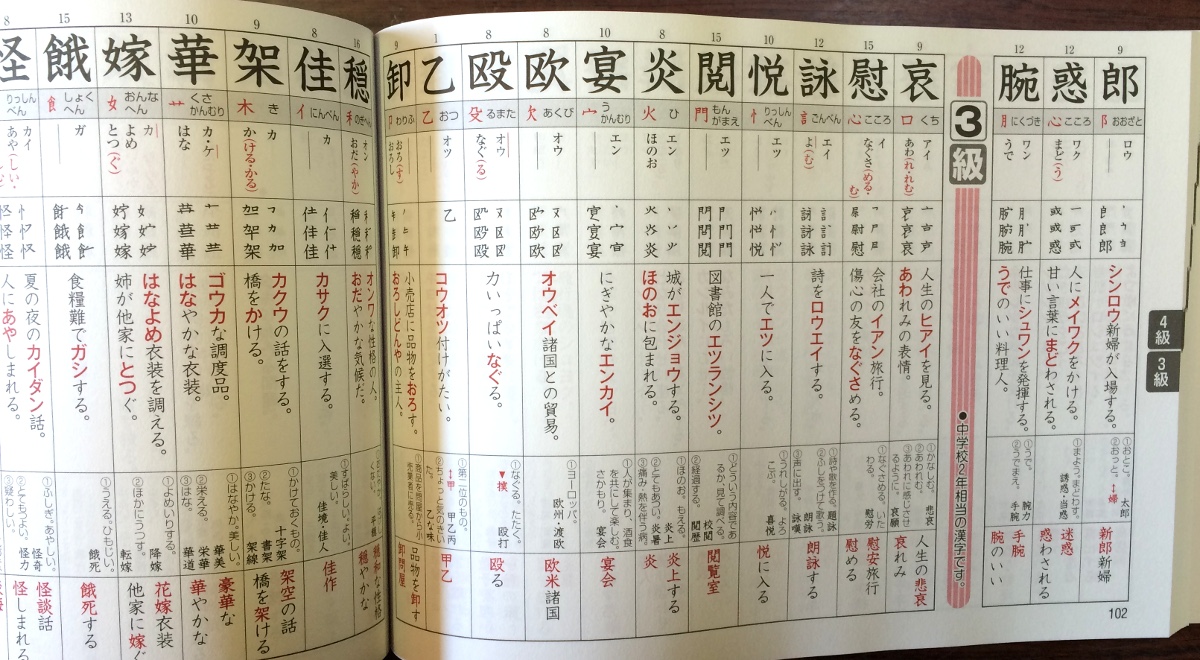 9
郎
阝 おおざと
ロウ
シンロウ新婦が入場する。
①おとこ。
②おっと。↔婦
太郎
新郎新婦
12
惑
心 こころ
ワク
まど(う)
人にメイワクをかける。
甘い言葉にまどわされる。
①まよう。まどわす。
誘惑・当惑
迷惑
惑わされる
12
腕
月 にくづき
ワン
うで
仕事にシュワンを発揮する。
うでのいい料理人。
①うで。 腕力
②うでまえ。 手腕
手腕
腕のいい
3級
●中学校2年相当の漢字です。
4級
3級
102
9
哀
口 くち
アイ
あわ(れ・れむ)
人生のヒアイを見る。
あわれみの表情。
①かなしむ。 悲哀
②あわれむ。
③あわれに感じさせるように。 哀願
人生の悲哀
哀れみ
15
慰
心 こころ
イ
なぐさ(める・む)
会社のイアン旅行。
傷心の友をなぐさめる。
①なぐさめる。いたわる。
慰労
慰安旅行
慰める
12
詠
言 ごんべん
エイ
よ(む)
詩をロウエイする。
①詩や歌を作る。題詠
②ふしをつけて歌う。 朗詠
③声に出す。 詠嘆
朗詠する
10
悦
忄 りっしんべん
エツ
一人でエツに入る。
①うれしがる。よろこぶ。
喜悦
悦に入る
15
閲
門 もんがまえ
エツ
図書館のエツランシツ。
①どういう内容であるか、見て調べる。
校閲
②経過する。 閲歴
閲覧室
8
炎
火 ひ
エン
ほのお
城がエンジョウする。
ほのおに包まれる。
①ほのお。もえる。 炎上
②とてもあつい。炎暑
③痛み・熱を伴う病。
炎上する
炎
10
宴
宀 うかんむり
エン
にぎやかなエンカイ。
①人が集まり、酒食を共にして楽しむ。さかもり。 宴会
宴会
8
欧
欠 あくび
オウ
オウベイ諸国との貿易。
①ヨーロッパ。
欧州・渡欧
欧米諸国
8
殴
殳 るまた
オウ
なぐ(る)
力いっぱいなぐる。
①なぐる。たたく。
▼撲 殴打
殴る
1
乙
乙 おつ
オツ
コウオツ付けがたい。
①第二位のもの。
↔甲 甲乙丙
②ちょっと気のきいた。 乙な味
甲乙
9
卸
卩 わりふ
おろ(す)
おろし
小売店に品物をおろす。
おろしどんやの主人。
①商品を問屋から小売業者に売る。
品物を卸す
卸問屋
16
穏
禾 のぎへん
オン
おだ(やか)
オンワな性格の人。
おだやかな気候だ。
穏和な性格
穏やかな
8
佳
亻 にんべん
カ
カサクに入選する。
①すばらしい。よい。美しい。
佳境・佳人
佳作
9
架
木 き
カ
か(ける・かる)
カクウの話をする。
橋をかける。
①かけておくもの。 十字架
②たな。 書架
③かける。 架線
架空の話
橋を架ける
10
華
艹 くさかんむり
カ・ケ
はな
ゴウカな調度品。
はなやかな衣装。
①はなやか。美しい。 華美
②栄える。 栄華
③はな。 華道
豪華な
華やかな
13
嫁
女 おんなへん
カ
よめ
とつ(ぐ)
はなよめ衣装を調える。
姉が他家にとつぐ。
①よめいりする。 降嫁
②ほかにうつす。 転嫁
花嫁衣装
他家に嫁ぐ
15
餓
飠 しょくへん
ガ
食糧難でガシする。
①うえる。ひもじい。
餓死
餓死する
8
怪
りっしんべん
カイ
あや(しい・
夏の夜のカイダン話。
人にあやしまれる。
①ふしぎ。あやしい。 怪奇
②とてもよい。 怪力
③疑わしい。
怪談話
怪しまれる